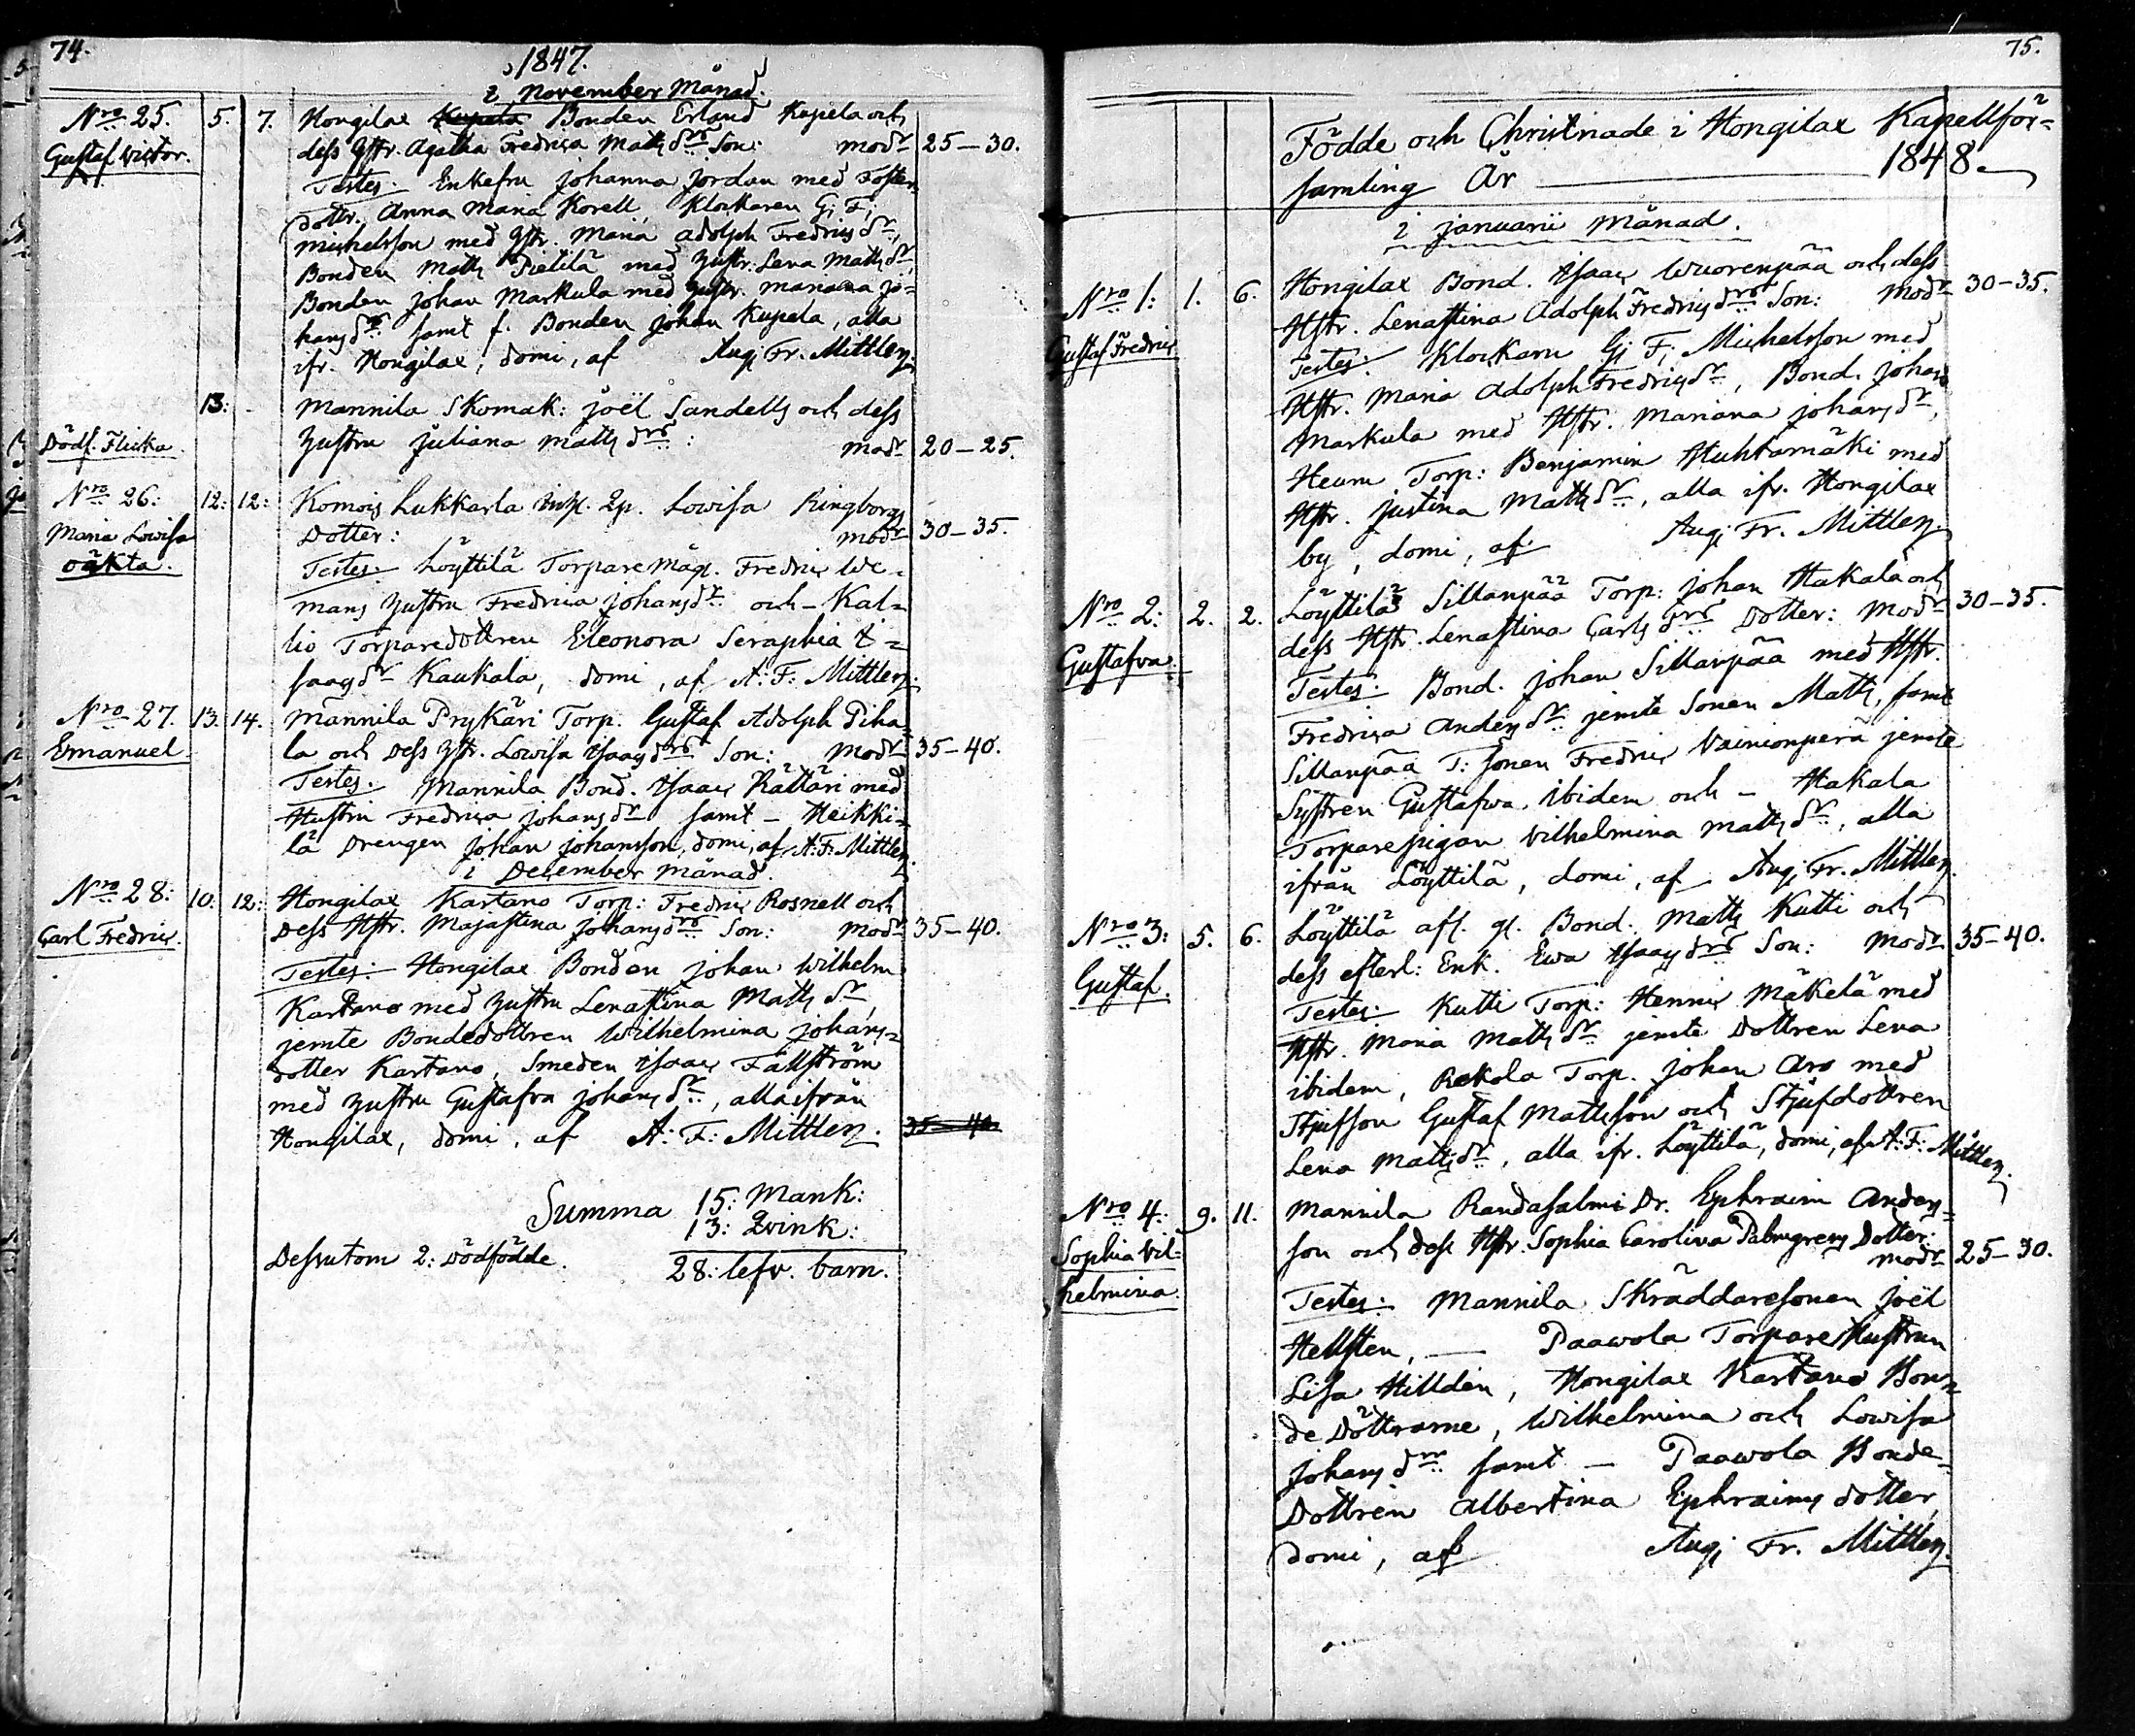 74.
1847.
i November Månad.
Nro 25. 5. 7. Hongilax Kupela Bonden Erland Kupela och
Gustaf Victor. dess Hstr. Agatha Fredrica Matts drs Son: modr 25-30.
Testes: Enkefru Johanna Jordan med Foster
dottr. Anna Maria Korell, Klockaren G: F:
Michelsson med Hstr. Maria Adolph Fredrics dr,
Bonden Matts Pietilä med Hustr. Lena Matts dr
Bonden Johan Markula med Hustr. Mariana Jo=
hans dr samt f. Bonden Johan Kupela, alla
ifr. Hongilax, domi, af Aug: Fr. Mittler.
13: Mannila Skomak: Joël Sandells och dess
Dödf. Flicka. Hustru Juliana Matts drs: modr 20-25.
Nro 26: 12: 12: Komois Lukkarla Inh. Qp. Lowisa Ringborgs
Maria Lowisa Dotter: modr 30-35.
oäkta. Testes Löyttilä Torpare Måg. Fredric We=
mans Hustru Fredrica Johans dr och - Kal=
lio Torparedottren Eleonora Seraphia I=
saacs dr Kaukala, domi, af A: F: Mittler.
Nro 27. 13. 14. Mannila Prykäri Torp. Gustaf Adolph Piha=
Emanuel. la och Dess Hstr. Lowisa Isaacs drs Son: Modr 35-40.
Testes: Mannila Bond. Isaac Rättäri med
Hustru Fredrica Johans dr samt - Heikki=
lä Drengen Johan Johansson, domi, af A: F: Mittler.
i December månad.
Nro 28: 10. 12: Hongilax Kartano Torp: Fredric Rosnell och
Carl Fredric. Dess Hstr. Majastina Johans drs Son: Modr 35-40.
Testes: Hongilax Bonden Johan Wilhelm
Kartano med Hustru Lenastina Matts dr
jemte Bondedottren Wilhelmina Johans=
dotter Kartano, Smeden Isaac Fällström
med Hustru Gustafva Johans dr, alla ifrån
Hongilax, domi, af A: F: Mittler. 35-40.
Summa 15: Mank:
13: Qvink:
Dessutom 2: Dödfödde. 28: lefv. barn.
75.
Födde och Christnade i Hongilax Kapellför=
samling År 1848.
i januarii månad.
Nro 1: 1. 6. Hongilax Bond. Isaac Wuorenpää och dess
Gustaf Fredric Hstr. Lenastina Adolph Fredrics drs Son: Modr 30-35.
Testes: Klockarn G: F: Michelsson med
Hstr. Maria Adolph Fredrics dr, Bond. Johan
Markula med Hstr. Mariana Johans dr,
Heurn Torp: Benjamin Huhtamäki med
Hstr. Justina Matts dr, alla ifr. Hongilax
by, domi, af Aug: Fr. Mittler.
Nro 2: 2. 2. Löyttilä Sillanpää Torp: Johan Hakala och
Gustafva. dess Hstr. Lenastina Carls drs Dotter: Modr 30-35.
Testes: Bond. Johan Sillanpää med Hstr.
Fredrica Anders dr jemte Sonen Matts, samt
Sillanpää T: sonen Fredric Vainionperä jemte
Systren Gustafva ibidem och - Hakala
Torparepigan Wilhelmina Matts dr, alla
ifrån Löyttilä, domi, af Aug: Fr. Mittler.
Nro 3: 5. 6. Löyttilä afl. gl. Bond. Matts Kutti och
Gustaf. dess efterl: Enk. Ewa Isaacs drs Son: Modr 35-40.
Testes: Kutti Torp: Henric Mäkelä med
Hstr. Maria Matts dr jemte Dottren Lena
ibidem, Rekola Torp. Johan Aro med
Stjufsson Gustaf Mattsson och Stjufdottren
Lena Matts dr, alla ifr. Löyttilä, domi, af A: F: Mittler.
Nro 4: 9. 11. Mannila Randasalmi Dr. Ephraim Anders=
Sophia Vil= son och dess Hstr. Sophia Carolina Palmgrens Dotter:
helmina. modr 25-30.
Testes: Mannila Skräddaresonen Joël
Hellsten, - Paawola Torpare Hustrun
Lisa Hilldén, Hongilax Kartano Bon=
de Döttrarne, Wilhelmina och Lowisa
Johans drr samt - Paawola Bonde=
Dottren Albertina Ephraims dotter,
domi, af Aug: Fr. Mittler.